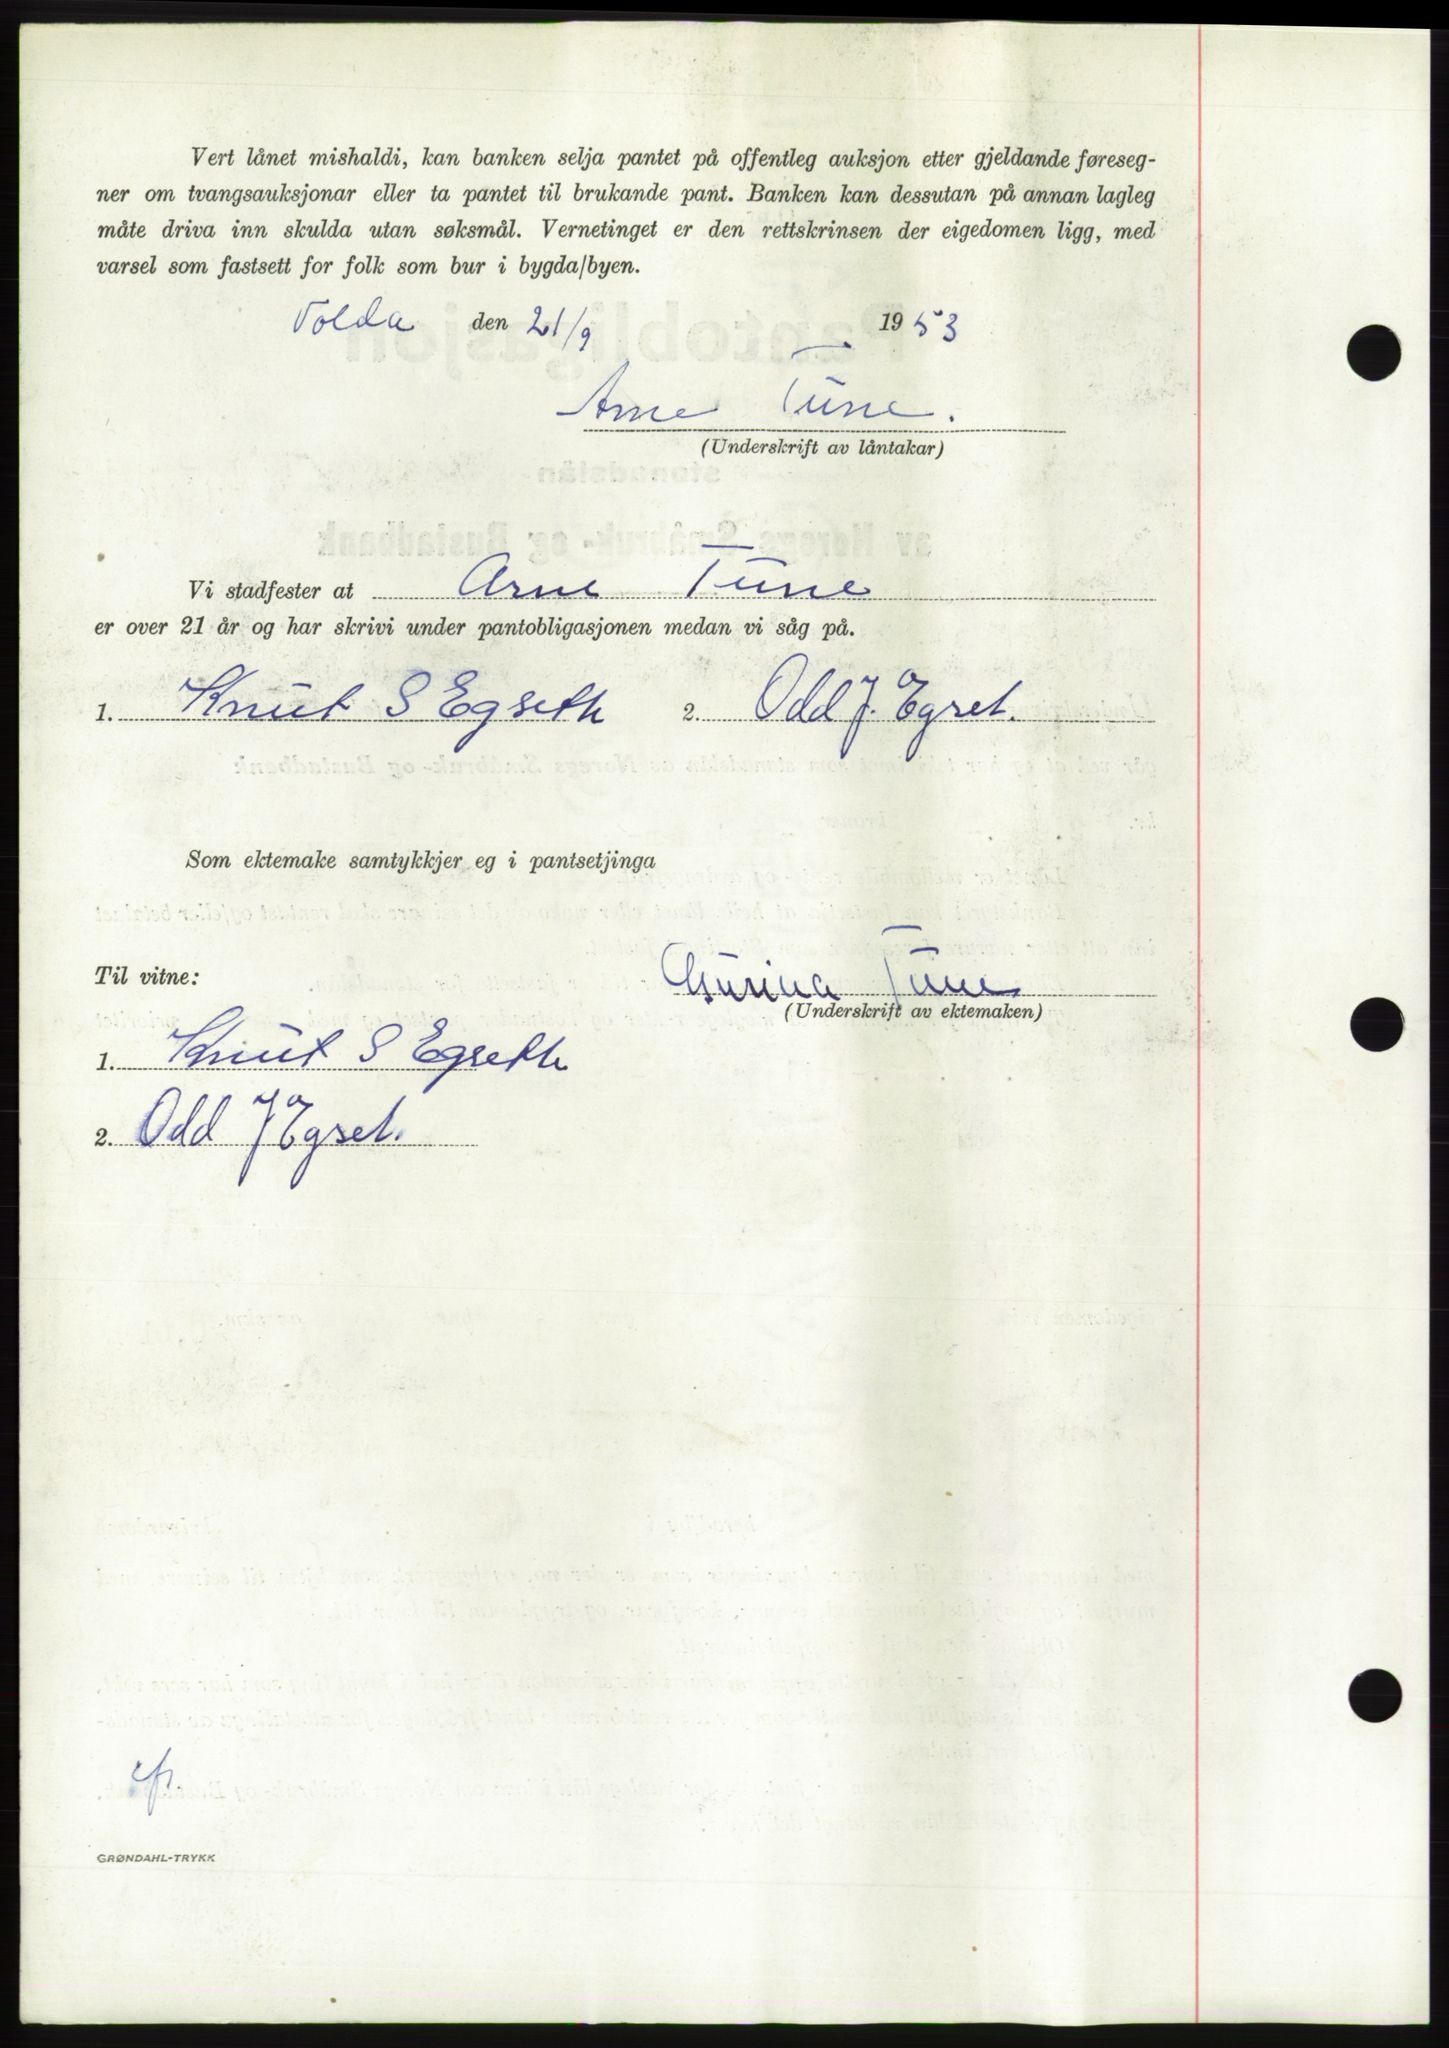 Vert lånet mishaldi, kan banken selja pantet på offentleg auksjon etter gjeldande føreseg-
ner om tvangsauksjonar eller ta pantet til brukande pant. Banken kan dessutan på annan lagleg
måte driva inn skulda utan søksmål. Vernetinget er den rettskrinsen der eigedomen ligg, med
varsel som fastsett for folk som bur i bygda/byen.
Volda den 21/9 1953
Arne Tune.
(Underskrift av låntakar)
Vi stadfester at Arne Tune
er over 21 år og har skrivi under pantobligasjonen medan vi såg på.
1. Knut S Egseth 2. Odd J. Egset.
Som ektemake samtykkjer eg i pantsetjinga
Til vitne: Gurina Tune
(Underskrift av ektemaken)
1. Knut S Egseth
2. Odd J Egset.
GRØNDAHL-TRYKK